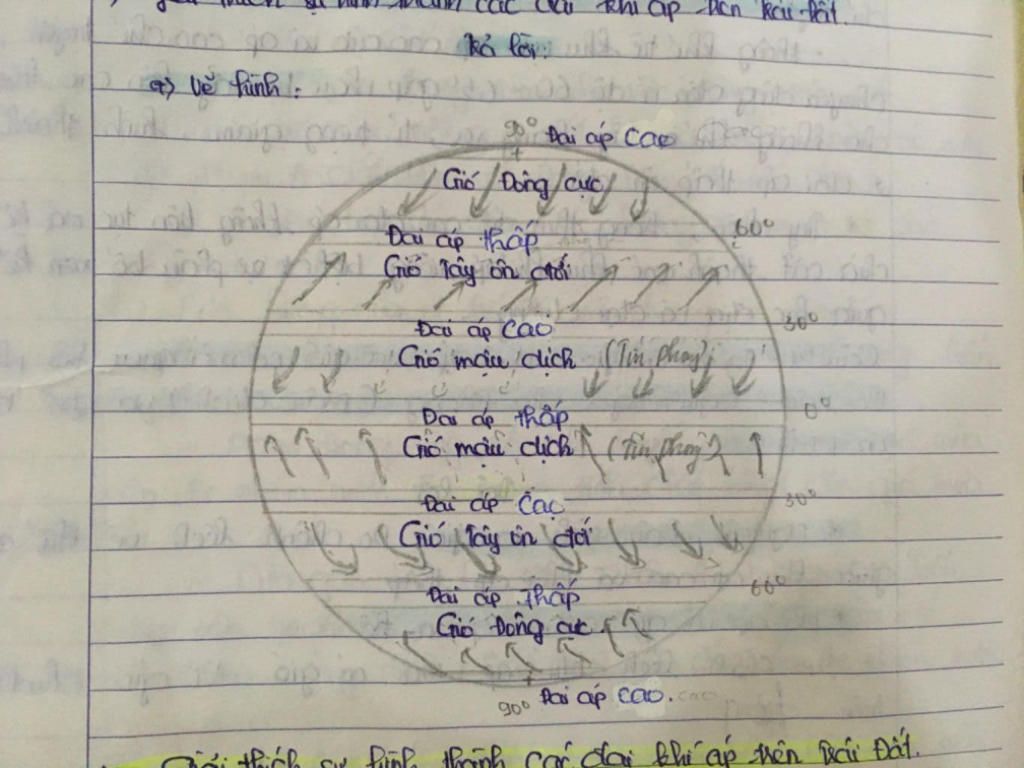 giải thích sự hình thành các đai khí áp trên trái đất.
Trả lời:
a) Vẽ hình:
90° Đai áp cao
Gió Đông cực
60°
Đai áp thấp
Gió Tây ôn đới
30°
Đai áp cao
Gió mậu dịch (Tín phong)
0°
Đai áp thấp
Gió mậu dịch (Tín phong)
30°
Đai áp cao
Gió Tây ôn đới
60°
Đai áp thấp
Gió Đông cực
90° Đai áp cao.
Giải thích sự hình thành các đai khí áp trên Trái Đất.